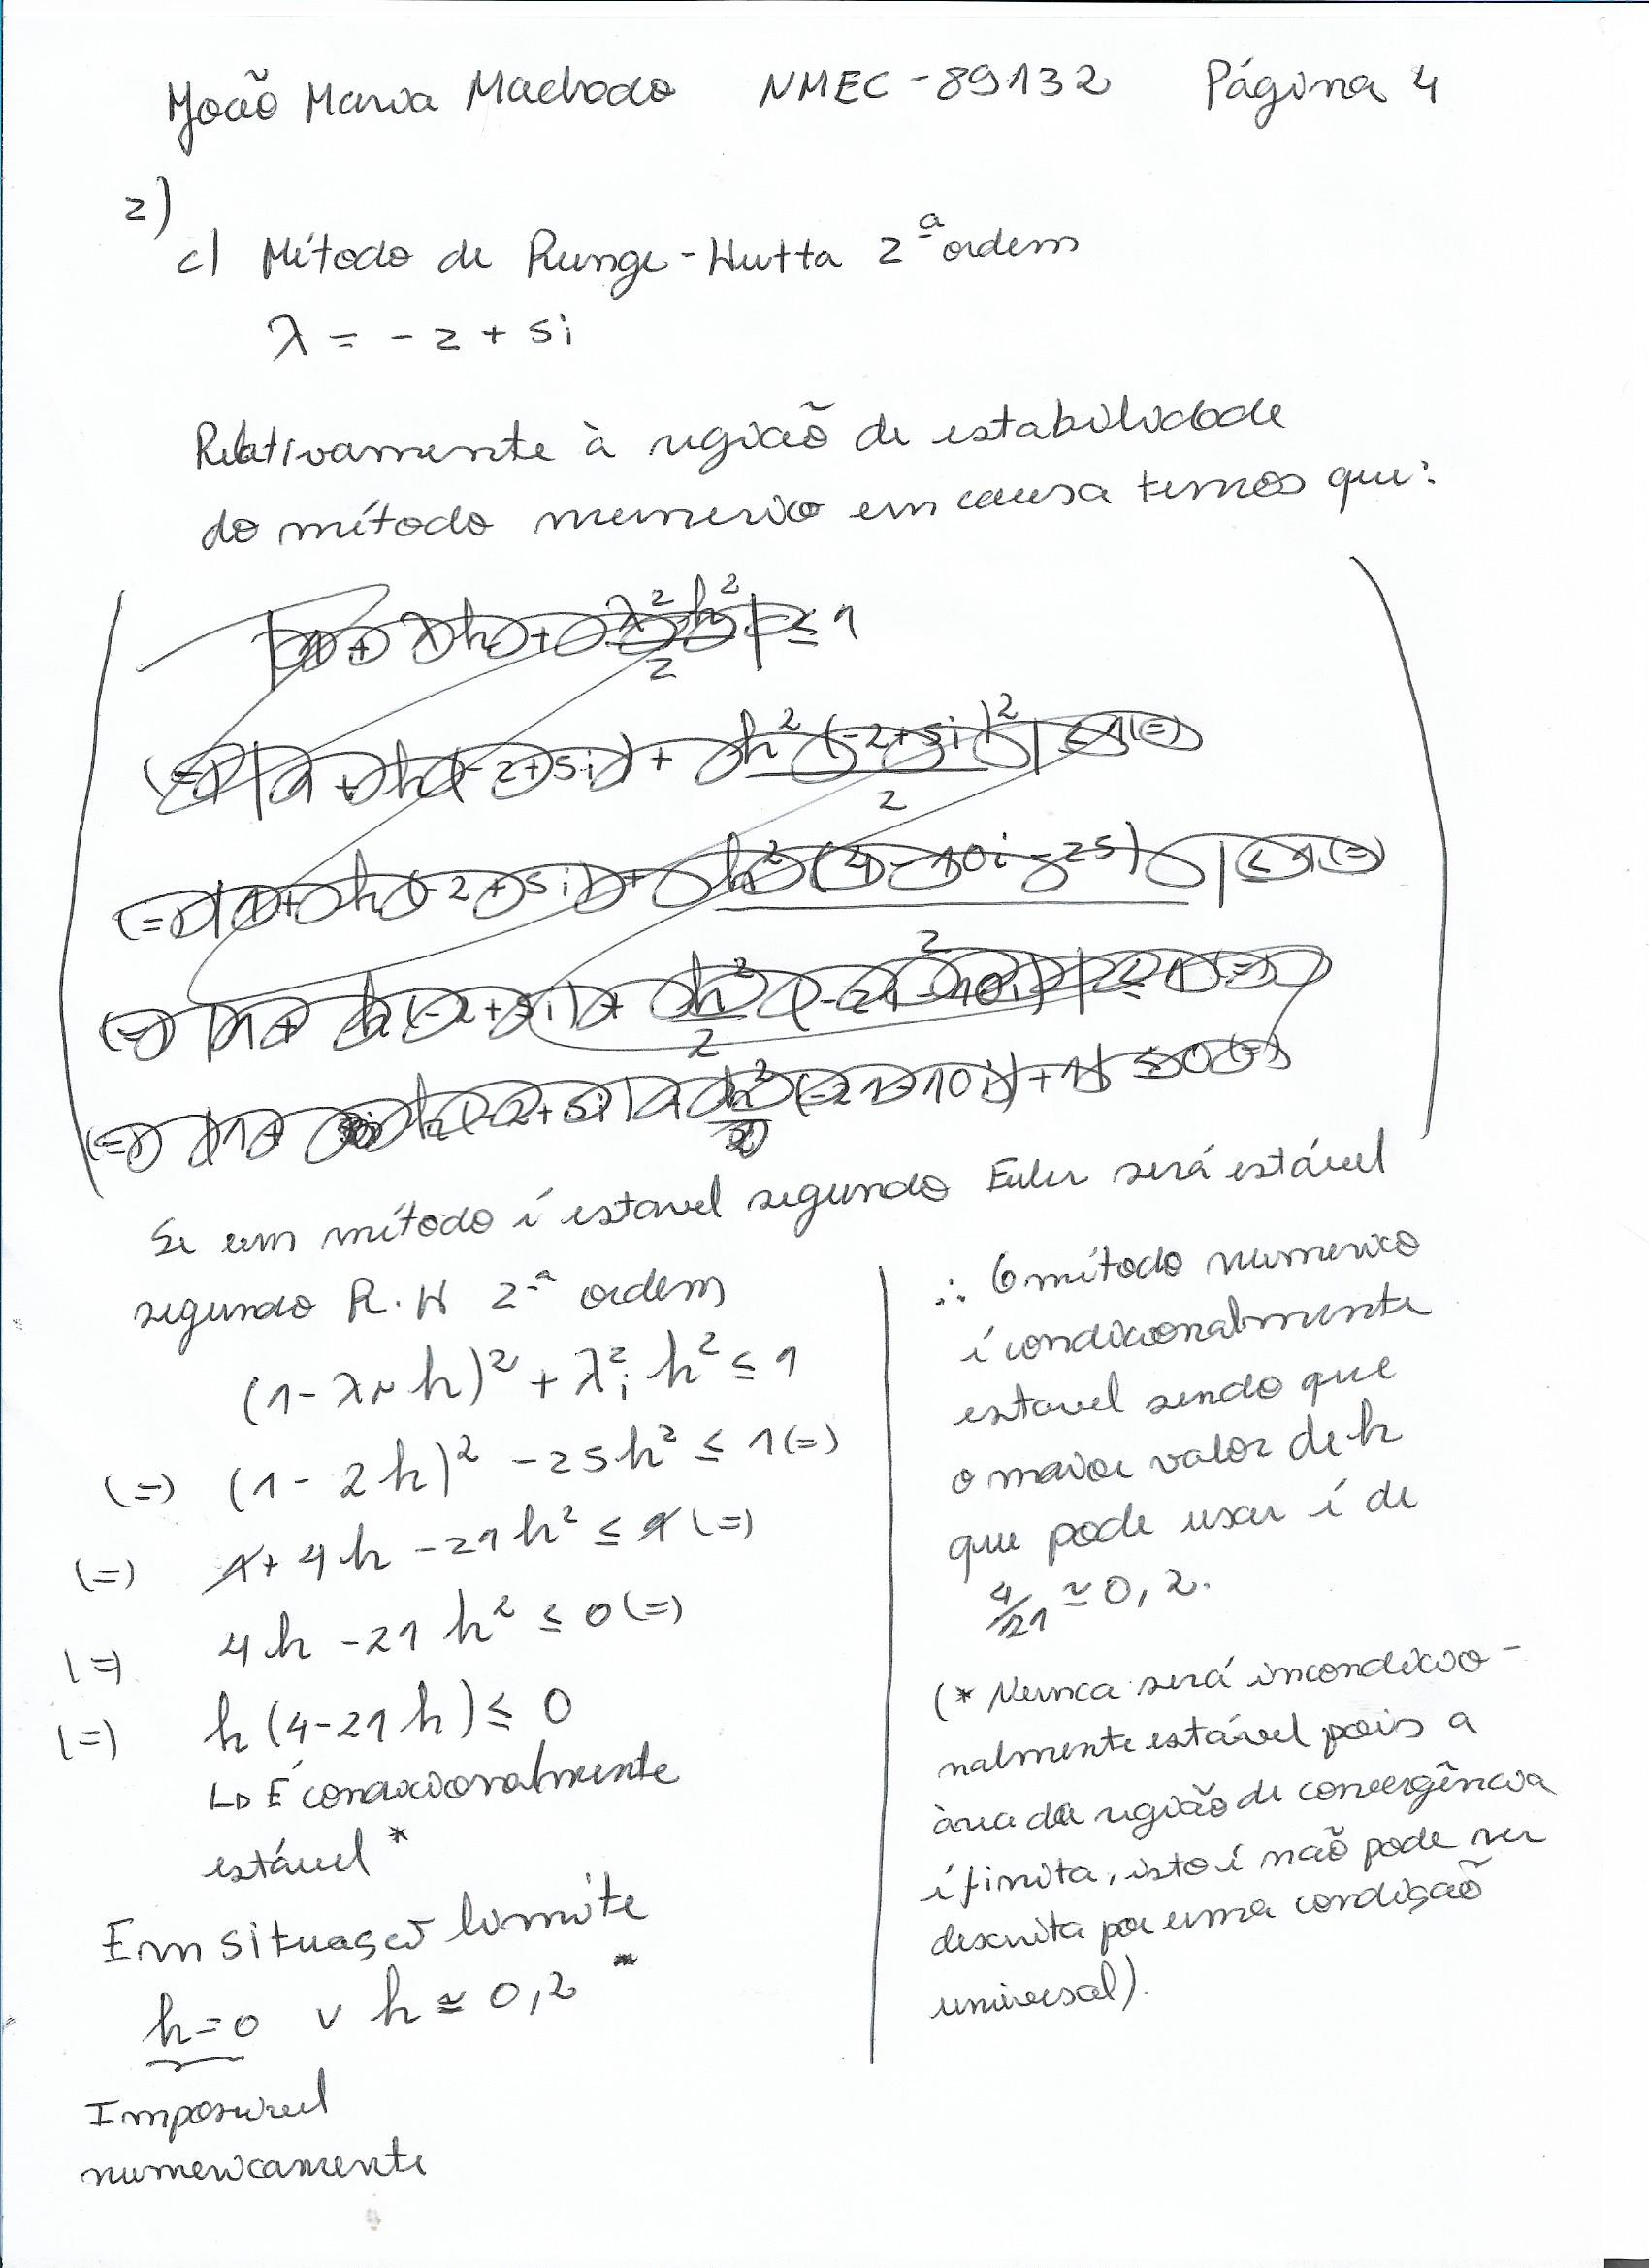 João Maria Machado NMEC-89132 Página 4
2)
c) Método de Runge-Kutta 2ª ordem
λ = -2 + 5i
Relativamente à região de estabilidade
do método numerico em causa temos que:
|1 + λh + λ²h²/2| ≤ 1
(=) |1 + h(-2+5i) + h²(-2+5i)²/2| ≤ 1 (=)
(=) |1 + h(-2+5i) + h²(4-10i-25)/2| ≤ 1 (=)
(=) |1 + h(-2+5i) + h²/2 (-21-10i)| ≤ 1 (=)
(=) |1 + h(-2+5i) + h²/2 (-21-10i) + 1| ≤ 0 (=)
Se um método é estavel segundo Euler será estável
segundo R.K 2ª ordem
(1-λr h)² + λi² h² ≤ 1
(=) (1-2h)² - 25h² ≤ 1 (=)
(=) 1 + 4h - 21h² ≤ 1 (=)
(=) 4h - 21h² ≤ 0 (=)
(=) h(4-21h) ≤ 0
↳ É condicionalmente
estável *
Em situação limite
h=0 v h ≅ 0,2
Impossivel
numericamente
∴ O método numerico
é condicionalmente
estavel sendo que
o maior valor de h
que pode usar é de
4/21 ≃ 0,2.
(* Nunca será incondicio-
nalmente estável pois a
área da região de convergência
é finita, isto é não pode ser
descrita por uma condição
universal).